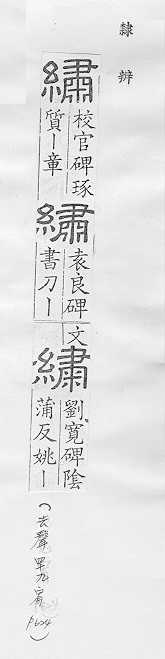 隸辨
繡
校官碑琢
質｜章
繡
袁良碑
書刀｜
文
繡
劉寬碑陰
蒲反姚｜
（去聲 四九宥 P604）